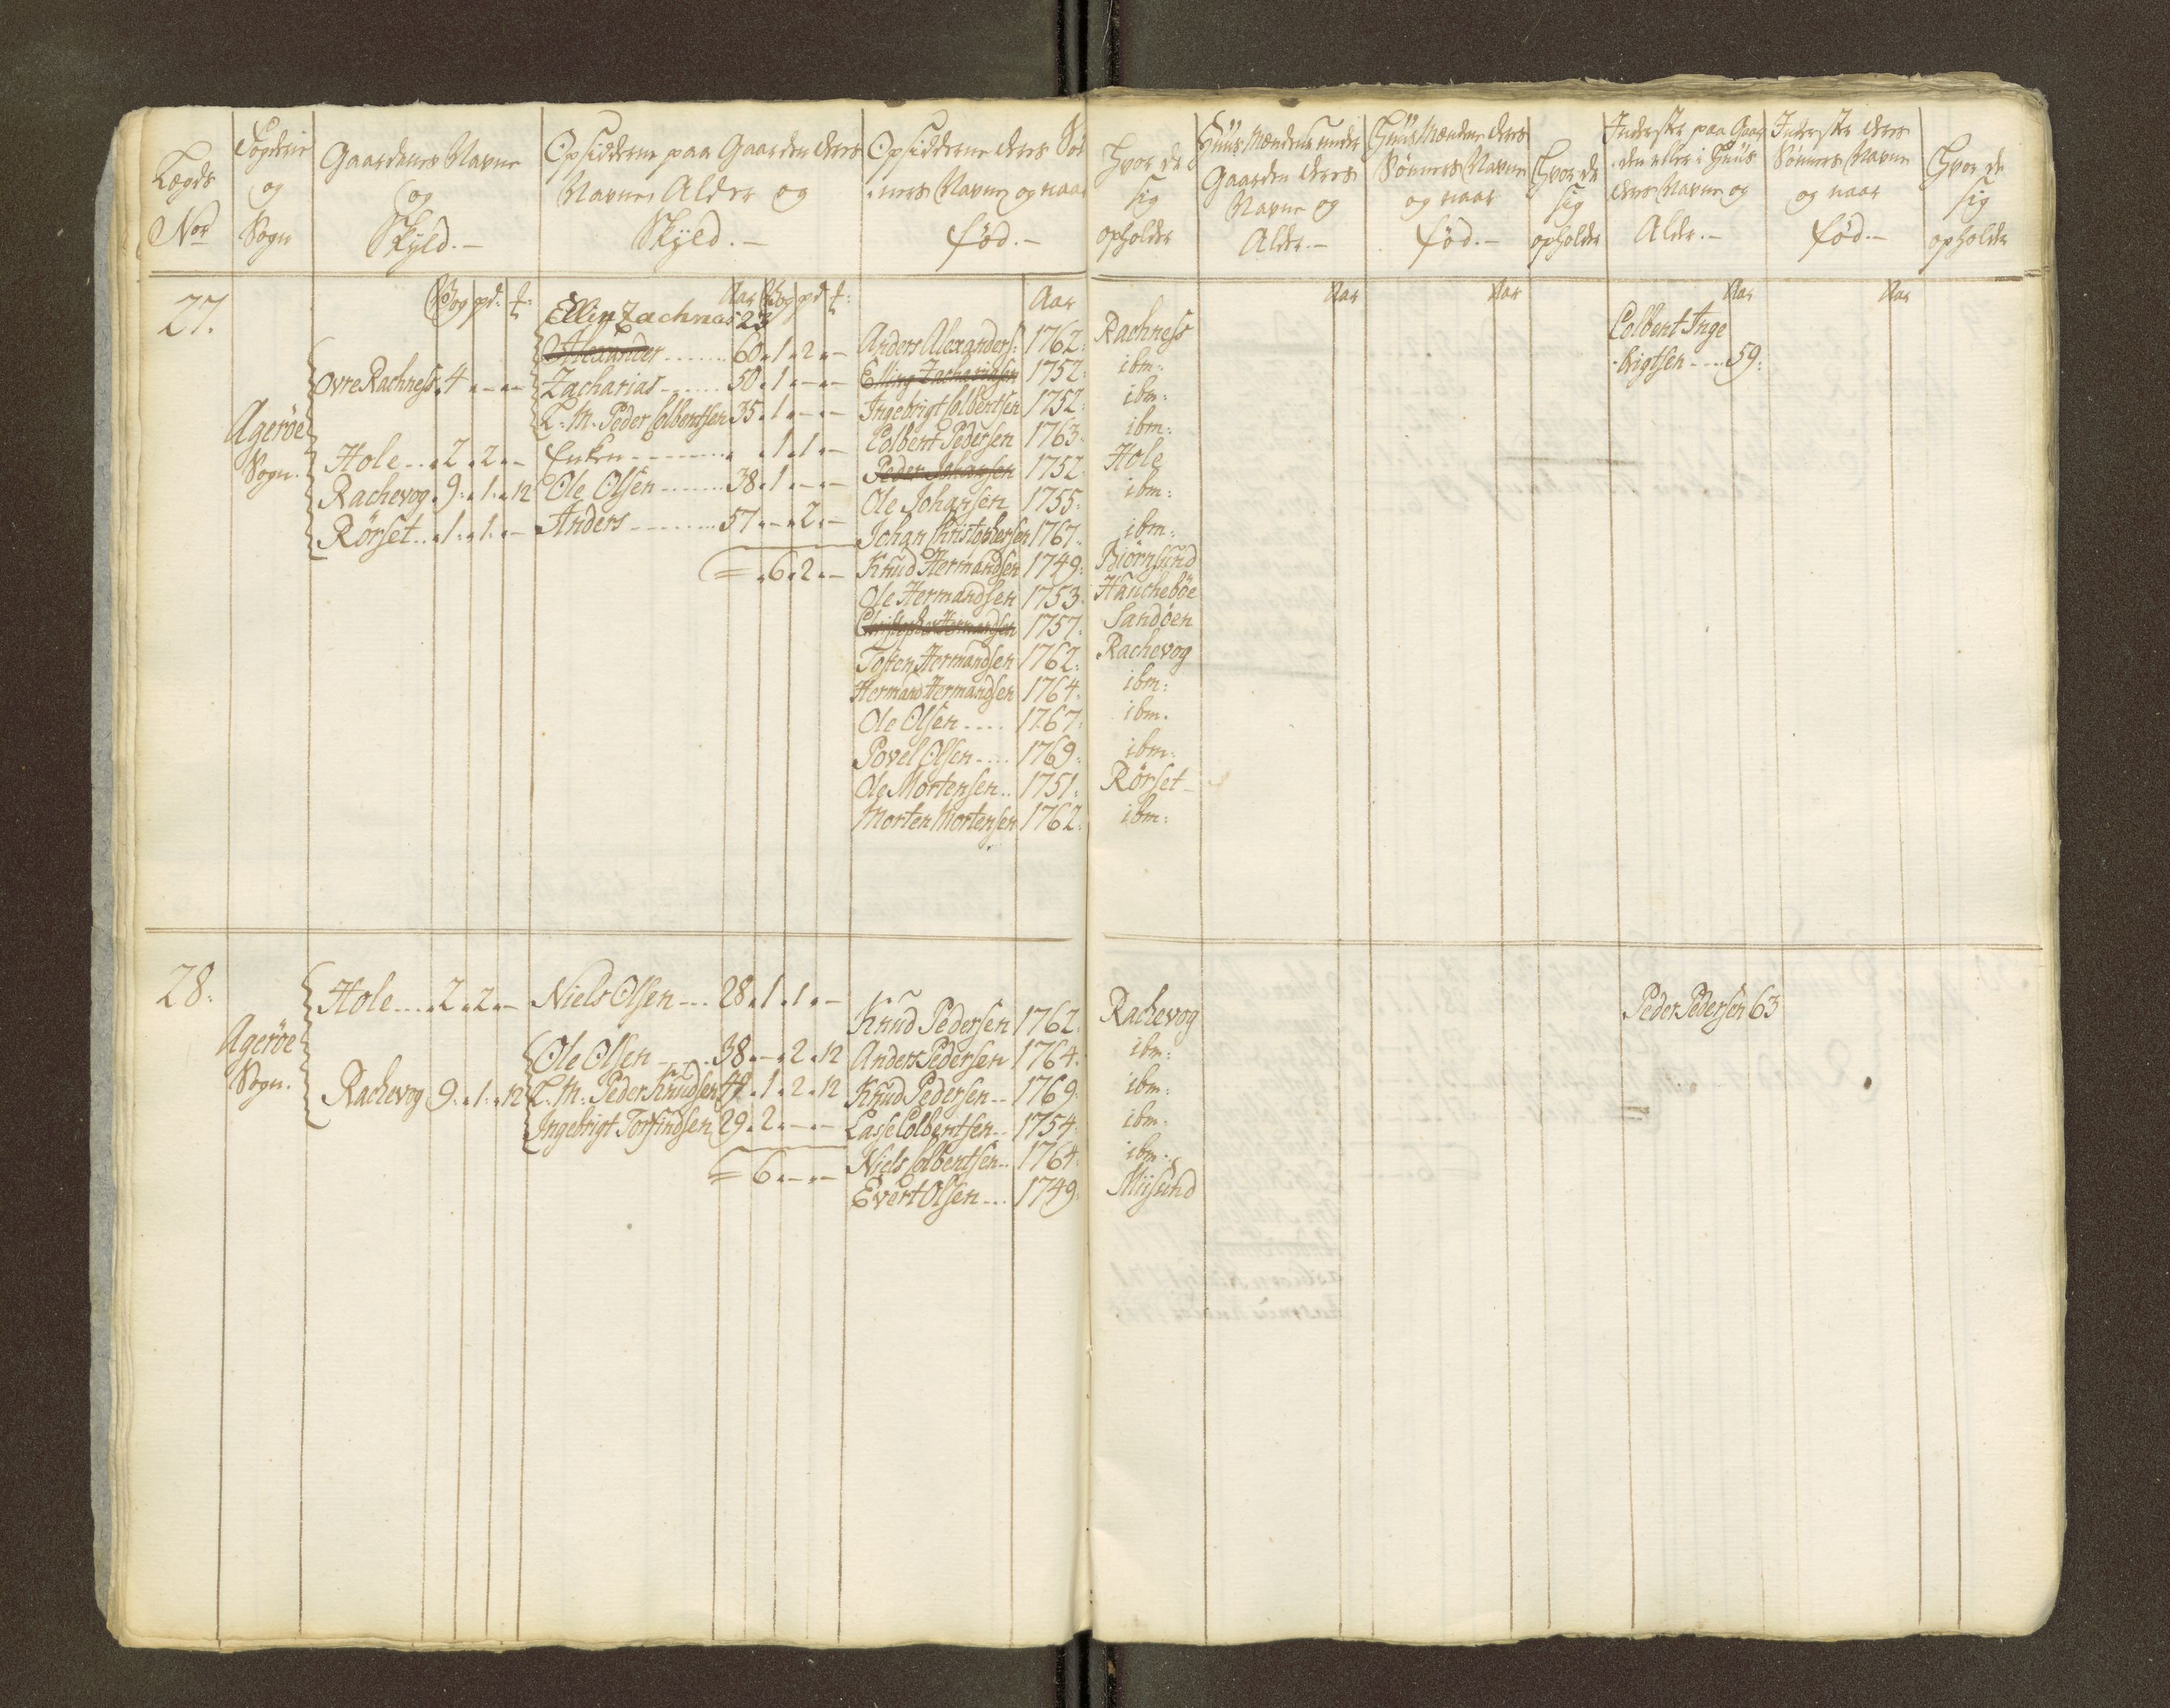 Lægds Nor | Fogderie og Sogn | Gaardenes Navne og Skyld.- | Opsidderne paa Gaarden deres Navne, Alder og Skyld.- | Opsidderne deres Sønners Navne og naar fød.- | Hvor de sig opholder | Huus Mændene under Gaarden deres Navne og Alder.- | Huus Mændene deres Sønners Navne og naar fød.- | Hvor de sig opholder | Inderste paa Gaarden eller i Huus deres Navne og Alder.- | Inderste deres Sønners Navne og naar fød.- | Hvor de sig opholder
27. | Wog | pd: | Aar | Wog | pd | Aar | Aar | Aar | Aar | Aar
Agerøe Sogn.
Øvre Rachness. 4 . - . -
Hole ... 2 . 2 . -
Rachevog . 9 . 1 . 12
Rørset .. 1 . 1 . -
Elling Zachrias 23
Alexander ....... 60 . 1 . 2 . -
Zacharias ...... 50 . 1 . - . -
L: M: Peder Colbentsen 35 . 1 . - . -
Enken ........ . 1 . 1 . -
Ole Olsen ....... 38 . 1 . - . -
Anders ........ 57 . - . 2 . -
= . 6 . 2 . -
Anders Alexanders: 1762: Rachness
Elling Zachariasen 1752: ibm:
Ingebrigt Colbentsen 1752: ibm:
Colbent Pedersen 1763. ibm:
Peder Johansen 1752 Hole
Ole Johansen 1755: ibm:
Johan Christophersen 1767. ibm:
Knud Hermandsen 1749: Biørnsund
Ole Hermandsen 1753: Hauchebøe
Christopher Hermandsen 1757: Sandøen
Tosten Hermandsen 1762: Rachevog
Hermand Hermandsen 1764: ibm:
Ole Olsen .... 1767: ibm.
Povel Olsen .... 1769: ibm:
Ole Mortensen .. 1751: Rørset -
Morten Mortensen 1762: ibm:
Colbent Inge
brigtsen .... 59:
28:
Agerøe Sogn.
Hole .... 2 . 2 . -
Rachevog 9 . 1 . 12
Niels Olsen ... 28 . 1 . 1 . -
Ole Olsen .... 38 . - . 2 . 12
L: M: Peder Knudsen 44 . 1 . 2 . 12
Ingebrigt Torfindsen 29 . 2 . - . -
= 6 . - . -
Knud Pedersen 1762. Rachevog
Anders Pedersen 1764. ibm:
Knud Pedersen .. 1769. ibm:
Lasse Colbentsen .. 1754. ibm.
Niels Colbentsen .. 1764. ibm:
Evert Olsen ... 1749. Miisund
Peder Pedersen 63